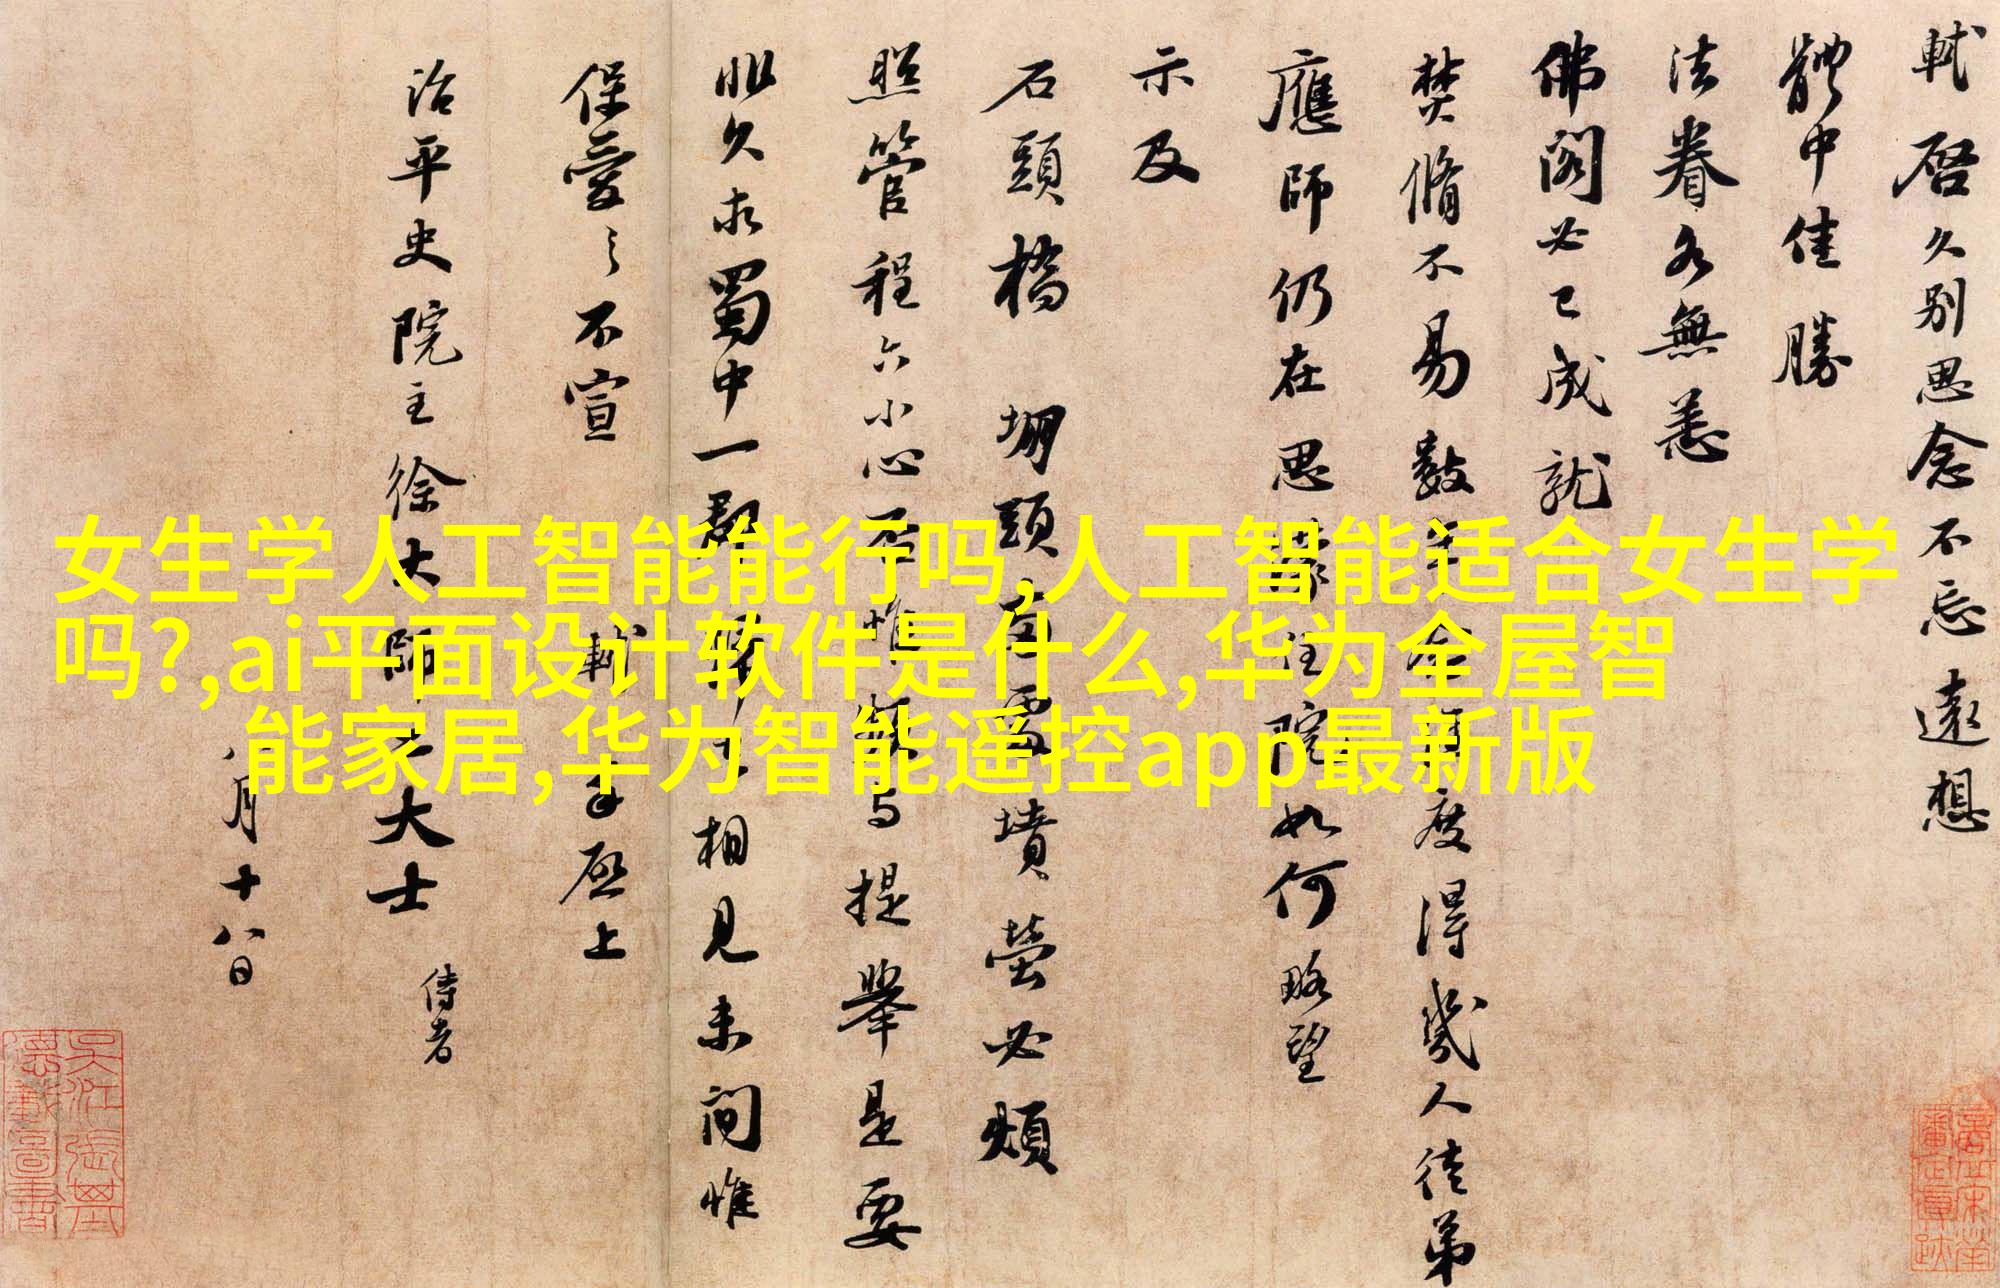 軾啓久別思念不忘遠想
體中佳勝
法眷各無恙
佛閣必已成就
焚脩不易數年念經度得幾人徒弟
應師仍在思蒙住院如何略望
示及
石頭橋堋頭两處墳塋必煩
照管程六小心否惟頻与提舉是要
非久求蜀中一郡歸去相見未間惟
保愛之不宣軾手啓上
治平史院主徐大師之大士侍者
八月十八日
女生学人工智能能行吗,人工智能适合女生学
吗?,ai平面设计软件是什么,华为全屋智
能家居,华为智能遥控app最新版